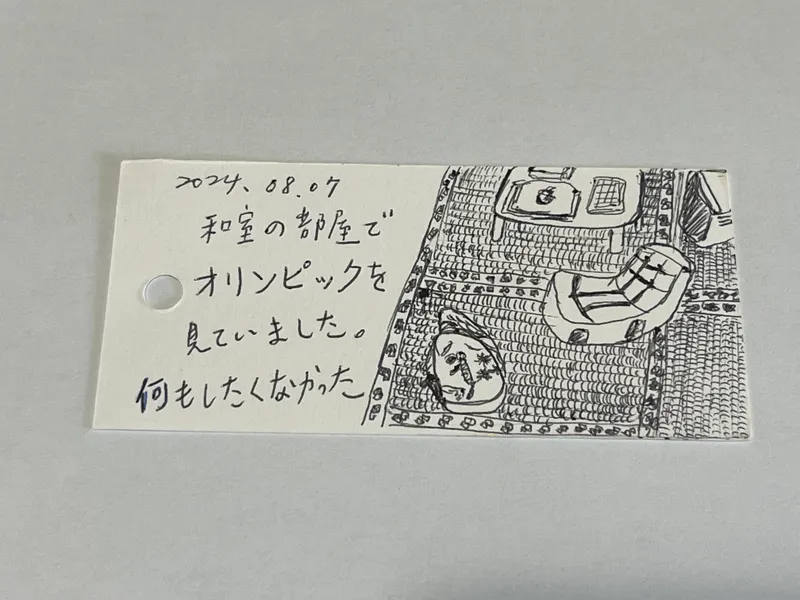 2024.08.07
和室の部屋で
オリンピックを
見ていました。
何もしたくなかった